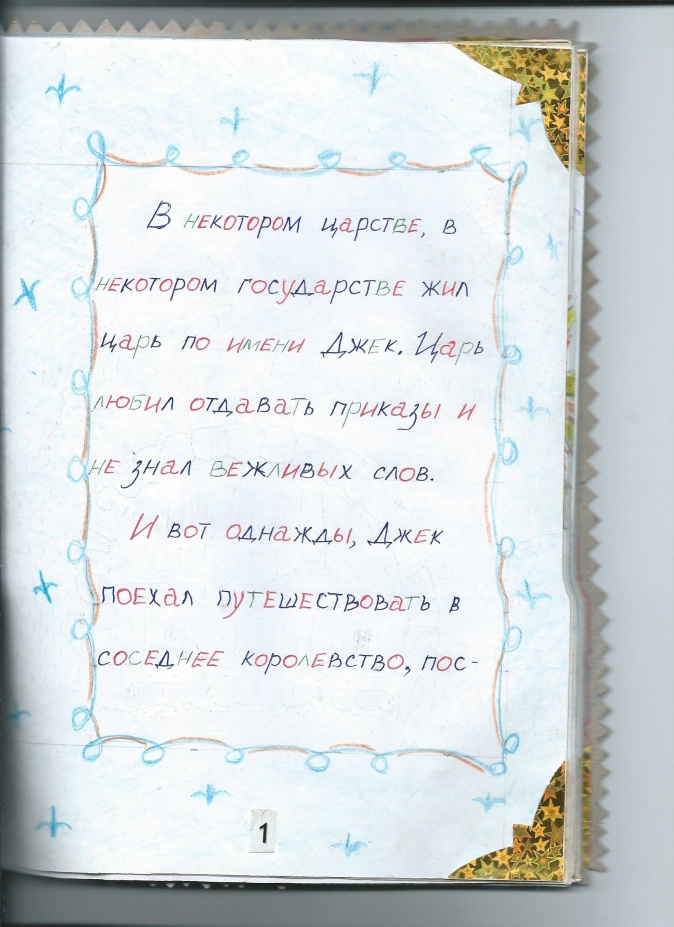 В некотором царстве, в
некотором государстве жил
царь по имени Джек. Царь
любил отдавать приказы и
не знал вежливых слов.
И вот однажды, Джек
поехал путешествовать в
соседнее королевство, пос-
1